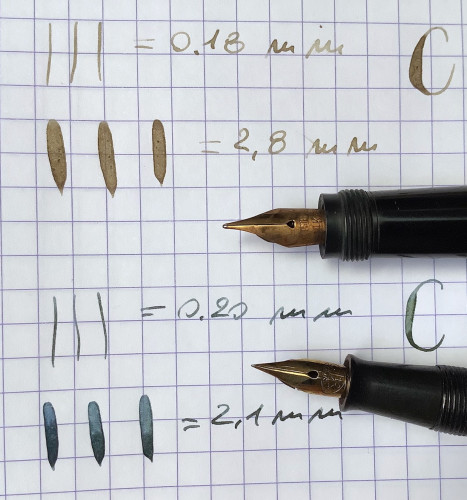 = 0.18 mm C
= 2,8 mm
= 0.20 mm C
= 2,1 mm